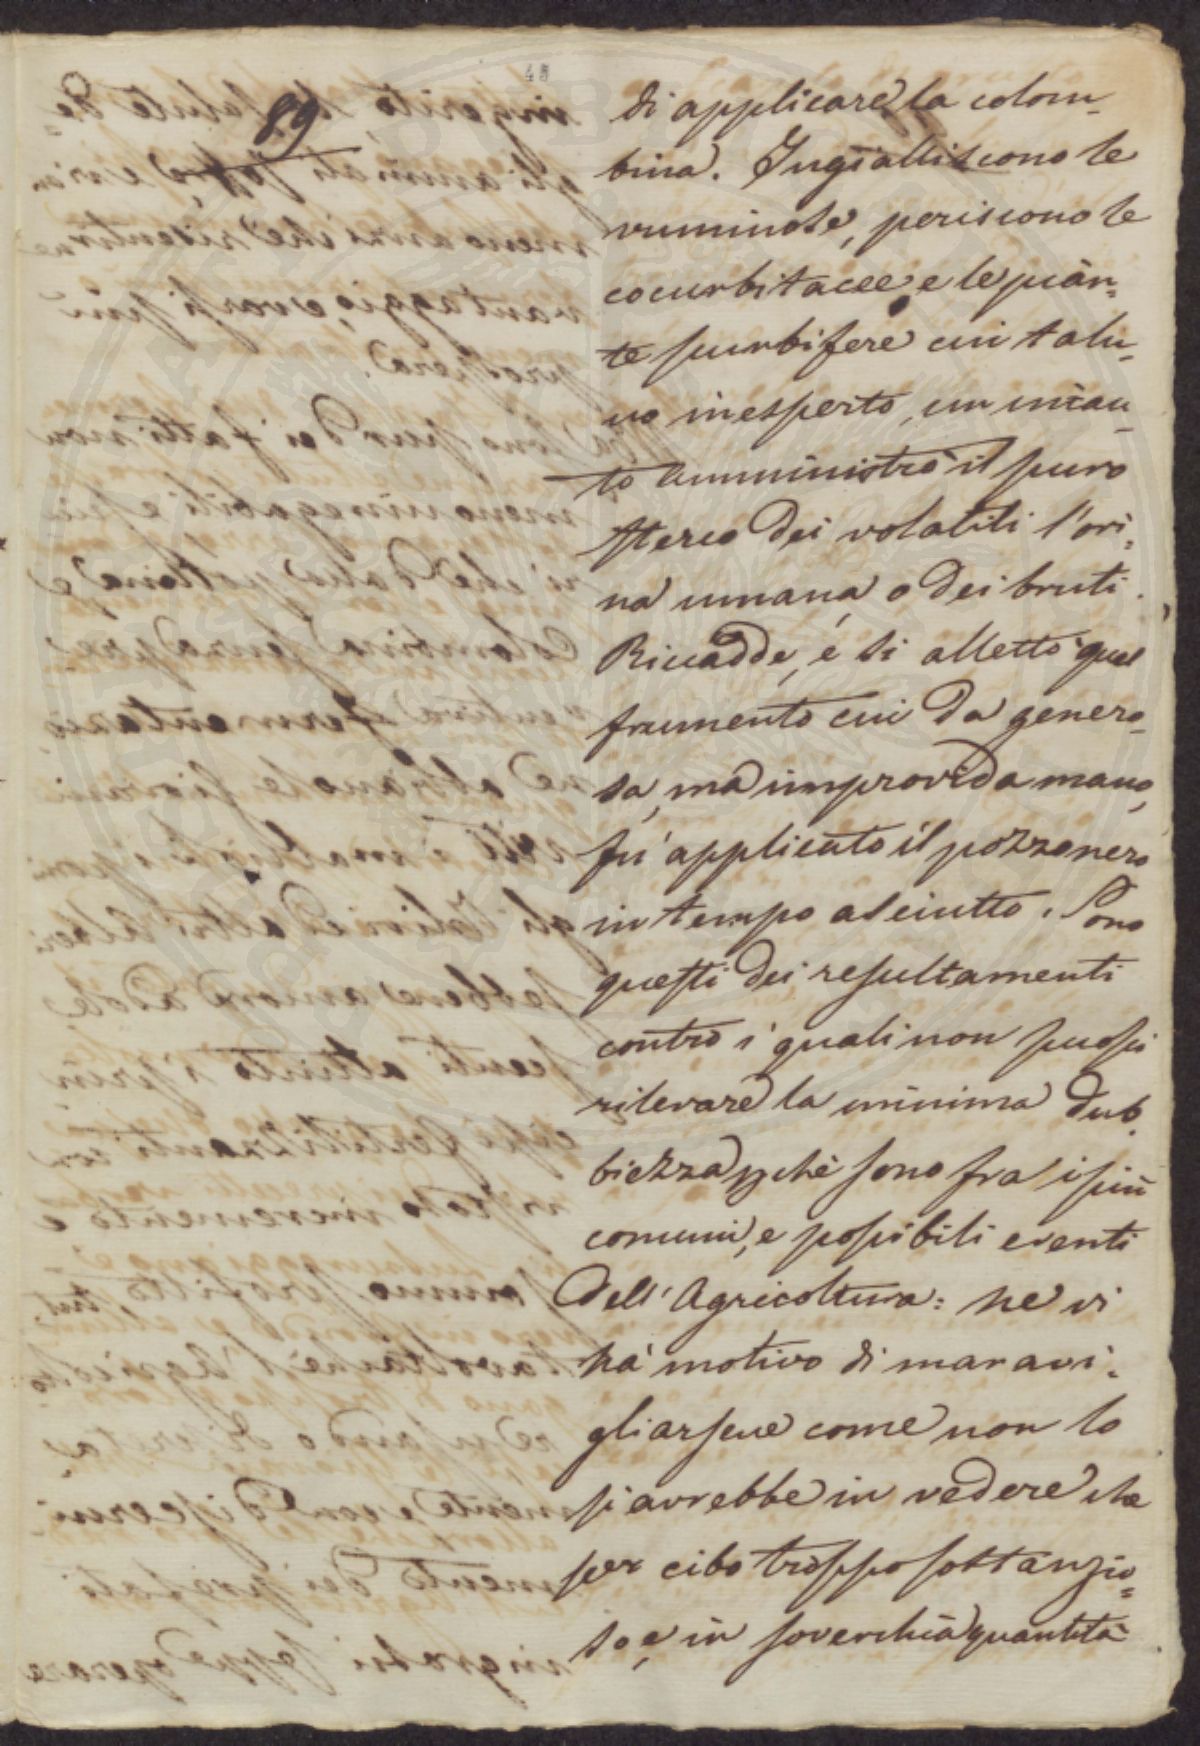 48
89
di applicare la colom-
bina. Ingialliscono le
vuminole, periscono le
cocurbitacee e le pian=
te purbifere cui talu-
no inesperto, un incau-
to amministrò il puro
sterco dei volatili l'ori-
na umana, o dei bruti.
Riccadde, e si allettò quel
frumento cui da genero-
sa, ma improvida mano,
fù applicato il pozzonero
in tempo asciutto. Sono
questi dei resultamenti
contro i quali non puossi
rilevare la minima dub-
biezza chè sono fra i più
comuni, e possibili eventi
dell'Agricoltura: ne vi
hà motivo di maravi-
gliarsene come non lo
si avrebbe in vedere che
per cibo troppo sostanzio=
so e, in soverchia quantità